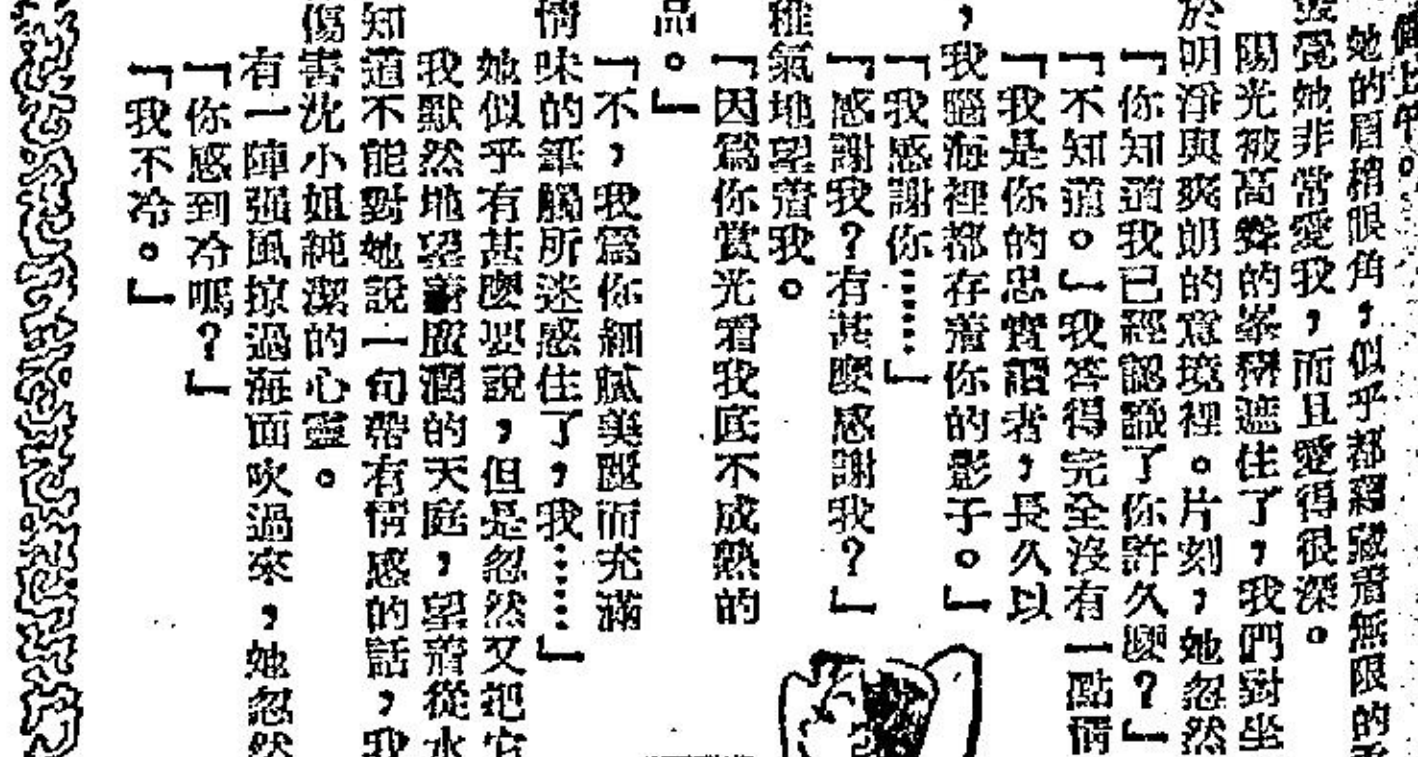 個上午。
她的眉梢眼角，似乎都蘊藏着無限的
覺她非常愛我，而且愛得很深。
陽光被高聳的峯巒遮住了，我們對坐
於明淨與爽朗的意境裡。片刻，她忽然
「你知道我已經認識了你許久麼？」
「不知道。」我答得完全沒有一點情
「我是你的忠實讀者，長久以
，我腦海裡都存着你的影子。」
「我感謝你……」
「感謝我？有甚麼感謝我？」
稚氣地望着我。
「因爲你賞光看我底不成熟的
品。」
「不，我爲你細膩美麗而充滿
情味的筆觸所迷惑住了，我……」
她似乎有甚麼要說，但是忽然又把它
我默然地望着廣濶的天庭，望着從水
知道不能對她說一句帶有情感的話，我
傷害沈小姐純潔的心靈。
有一陣强風掠過海面吹過來，她忽然
「你感到冷嗎？」
「我不冷。」